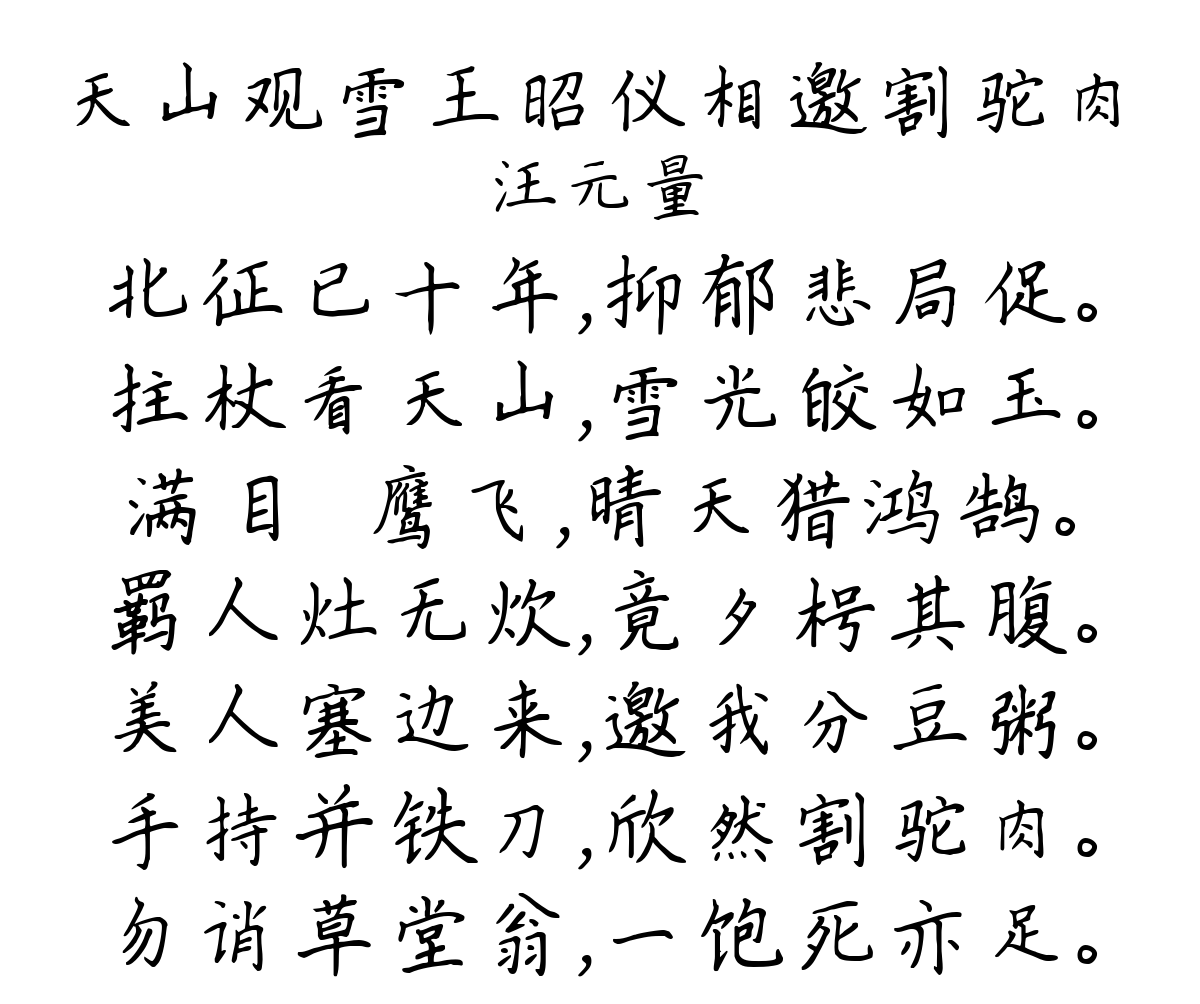 天山观雪王昭仪相邀割驼肉
汪元量
北征已十年,抑郁悲局促。
拄杖看天山,雪光皎如玉。
满目 鹰飞,晴天猎鸿鹄。
羁人灶无炊,竟夕枵其腹。
美人塞边来,邀我分豆粥。
手持并铁刀,欣然割驼肉。
勿诮草堂翁,一饱死亦足。